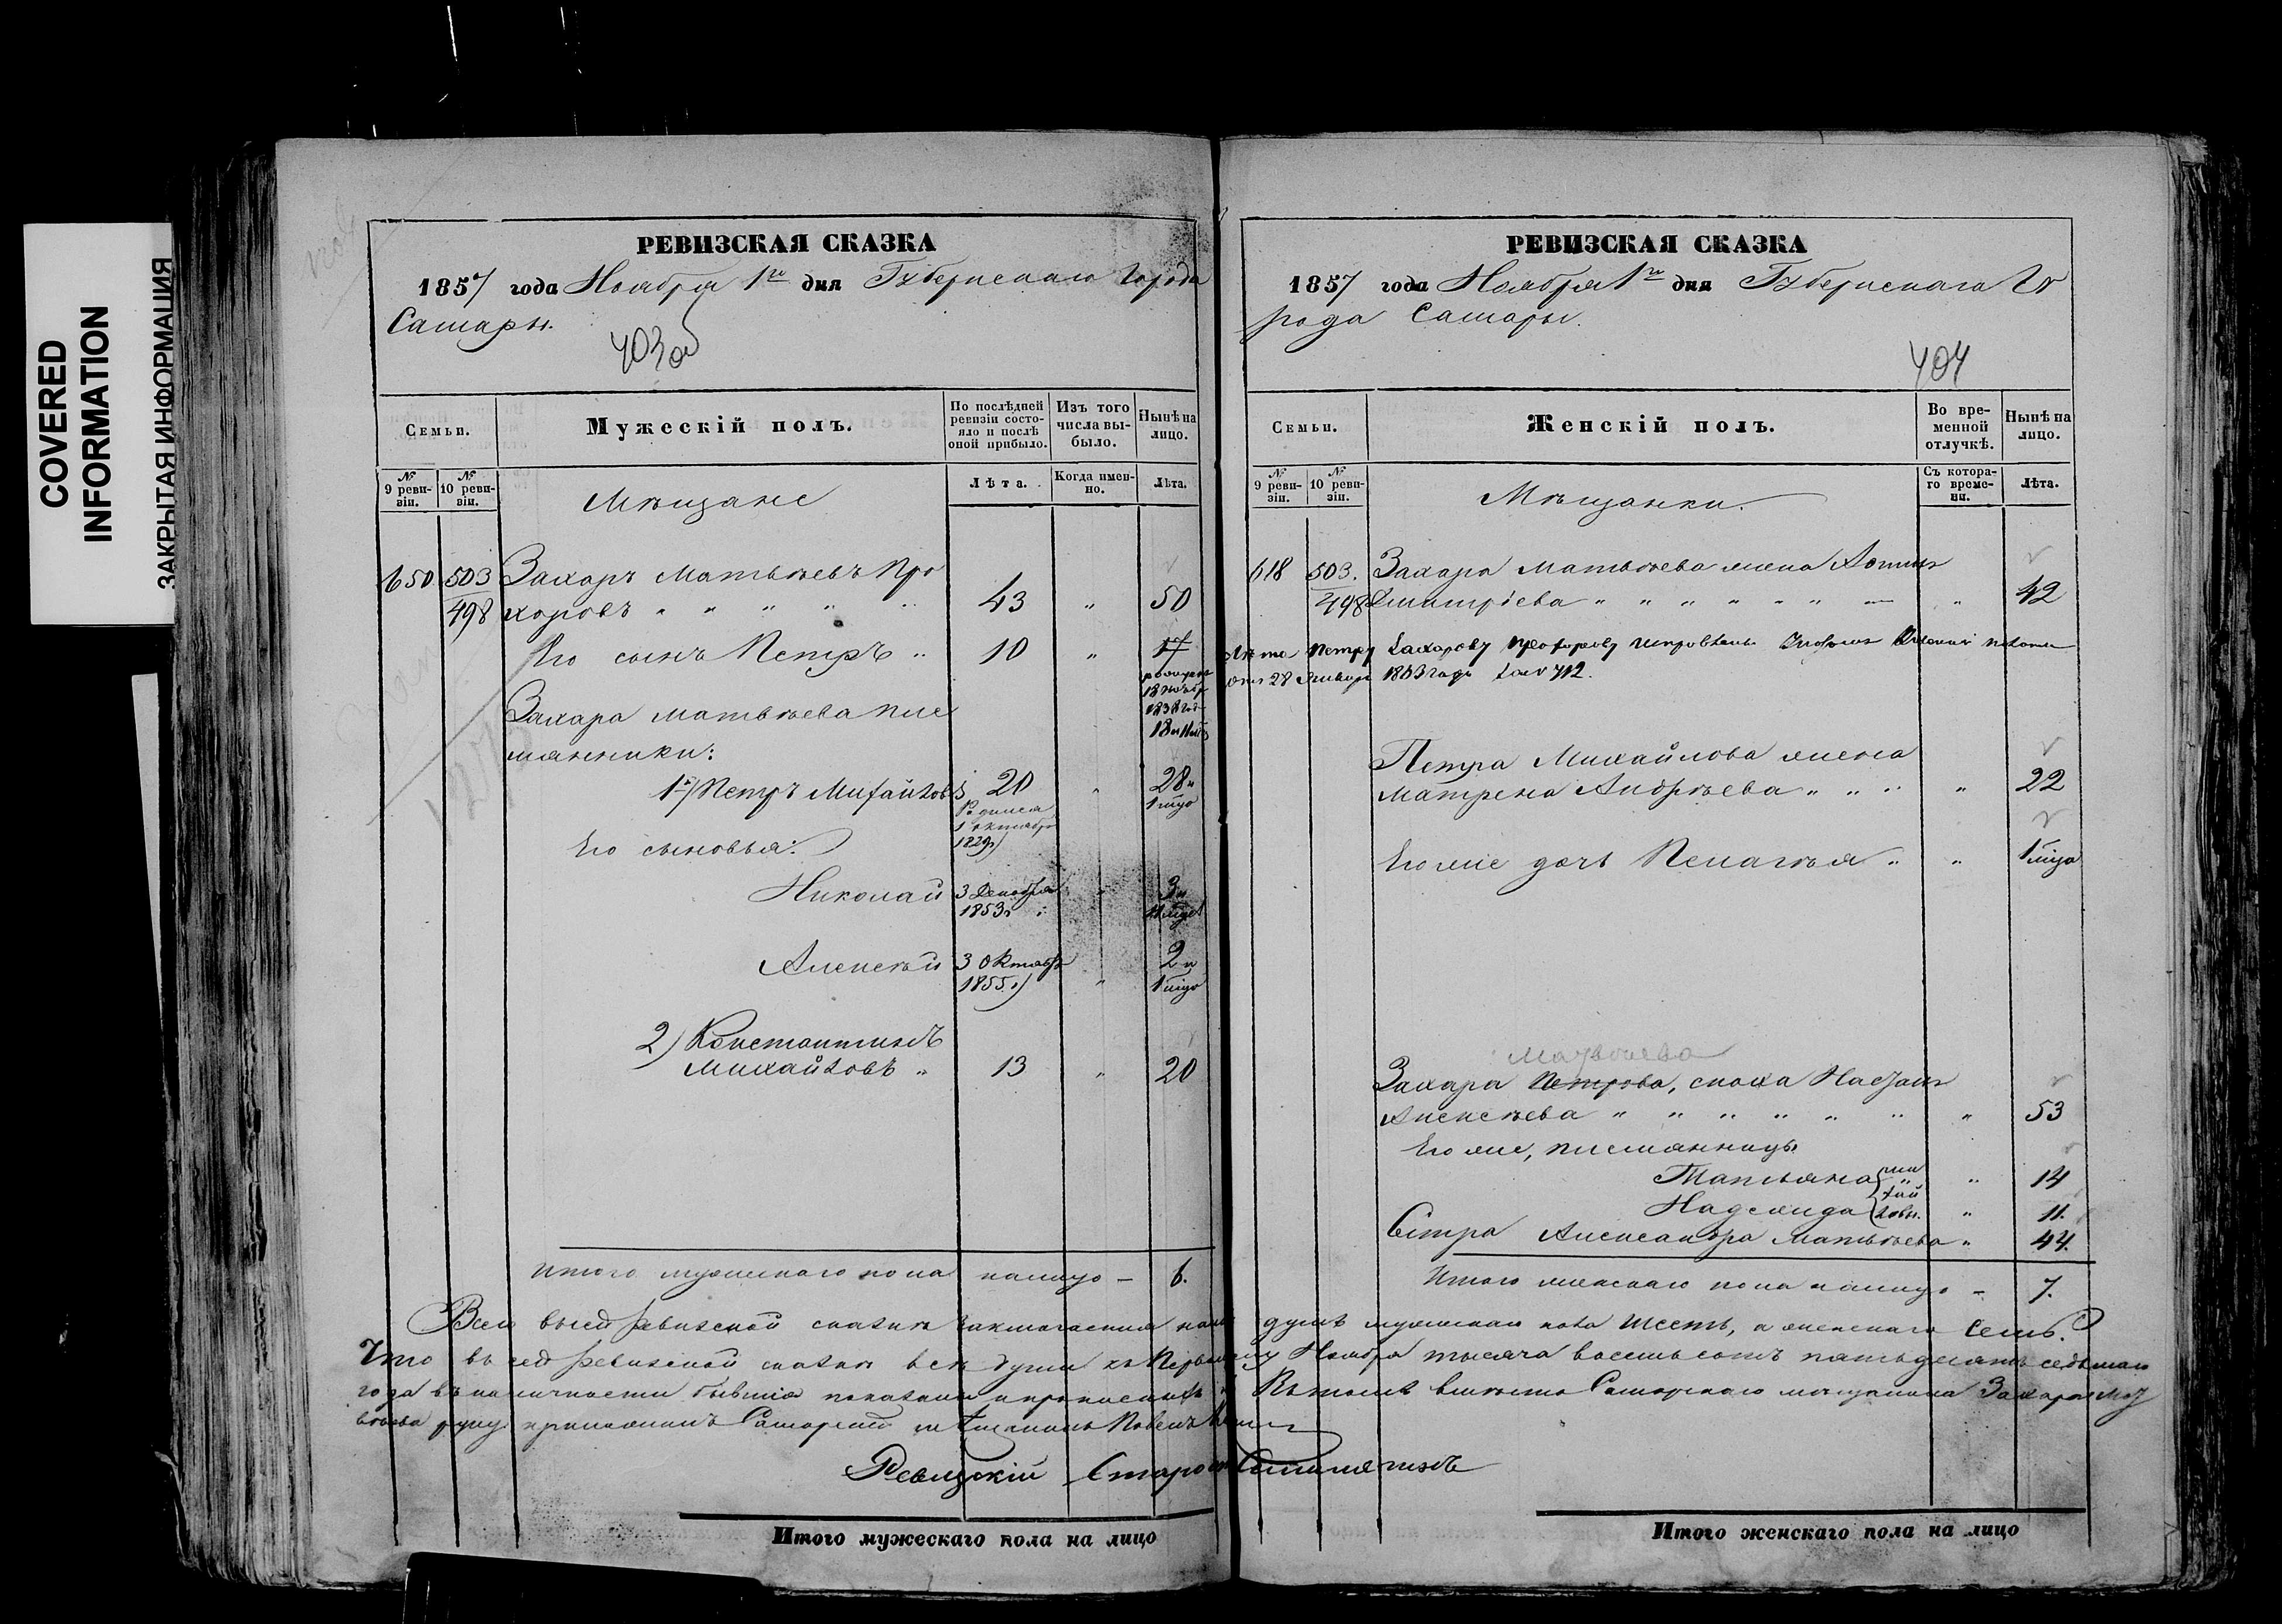 COVERED
INFORMATION
ЗАКРЫТАЯ ИНФОРМАЦИЯ
РЕВИЗСКАЯ СКАЗКА
1857 года Ноября 1го дня Губернскаго Города
Самары.
403 об
Семьи.
Мужескій полъ.
По послѣдней ревизіи состояло и послѣ оной прибыло.
Изъ того числа выбыло.
Нынѣ на лицо.
№ 9 ревизіи.
№ 10 ревизіи.
Мѣщане
Лѣта.
Когда именно.
Лѣта.
650 503 Захаръ Матвѣевъ Про
498 хоровъ " " " " " 43 " 50
Его сынъ Петръ " 10 " 17
18
Захара Матвѣева пле
мянники:
1й) Петръ Михайловъ 20 " 28 и
Родился 1 октября 1829
Его сыновья:
Николай 3 Декабря 1853 " 3 и
Алексѣй 3 Октября 1855 " 2 и
2) Константинъ
Михайловъ " 13 " 20
Итого мужескаго пола налицо – 6.
РЕВИЗСКАЯ СКАЗКА
1857 года Ноября 1го дня Губернскаго Го
рода Самары.
404
Семьи.
Женскій полъ.
Во временной отлучкѣ.
Нынѣ на лицо.
№ 9 ревизіи.
№ 10 ревизіи.
Мѣщанки.
Съ котораго времени.
Лѣта.
618 503. Захара Матвѣева жена
498 Дмитріева " " " " " " " " 42
Петру Захарову Прохорову
28 Января 1863 года 712.
Петра Михайлова жена
Матрена Андрѣева " " " " 22
Его же дочь Пелагѣя " "
Матвѣева
Захара Петрова, сноха
Алексѣева " " " " " " " 53
Его же, племянницы
Татьяна " 14
Надежда " 11.
Михайловы
Сестра Александра Матвѣева " 44.
Итого женскаго пола налицо – 7.
Всего въ сей ревизской сказкѣ заключается налицо душъ мужескаго пола шесть, а женскаго семь.
Что въ сей ревизской сказкѣ всѣ души къ Первому Ноября тысяча восемьсотъ пятьдесятъ седьмаго
года въ наличности бывшія показаны и Самарскаго мѣщанина Захара Мат
вѣева руку приложилъ Самарскій мѣщанинъ
Ревизскій Староста
Итого мужескаго пола на лицо
Итого женскаго пола на лицо